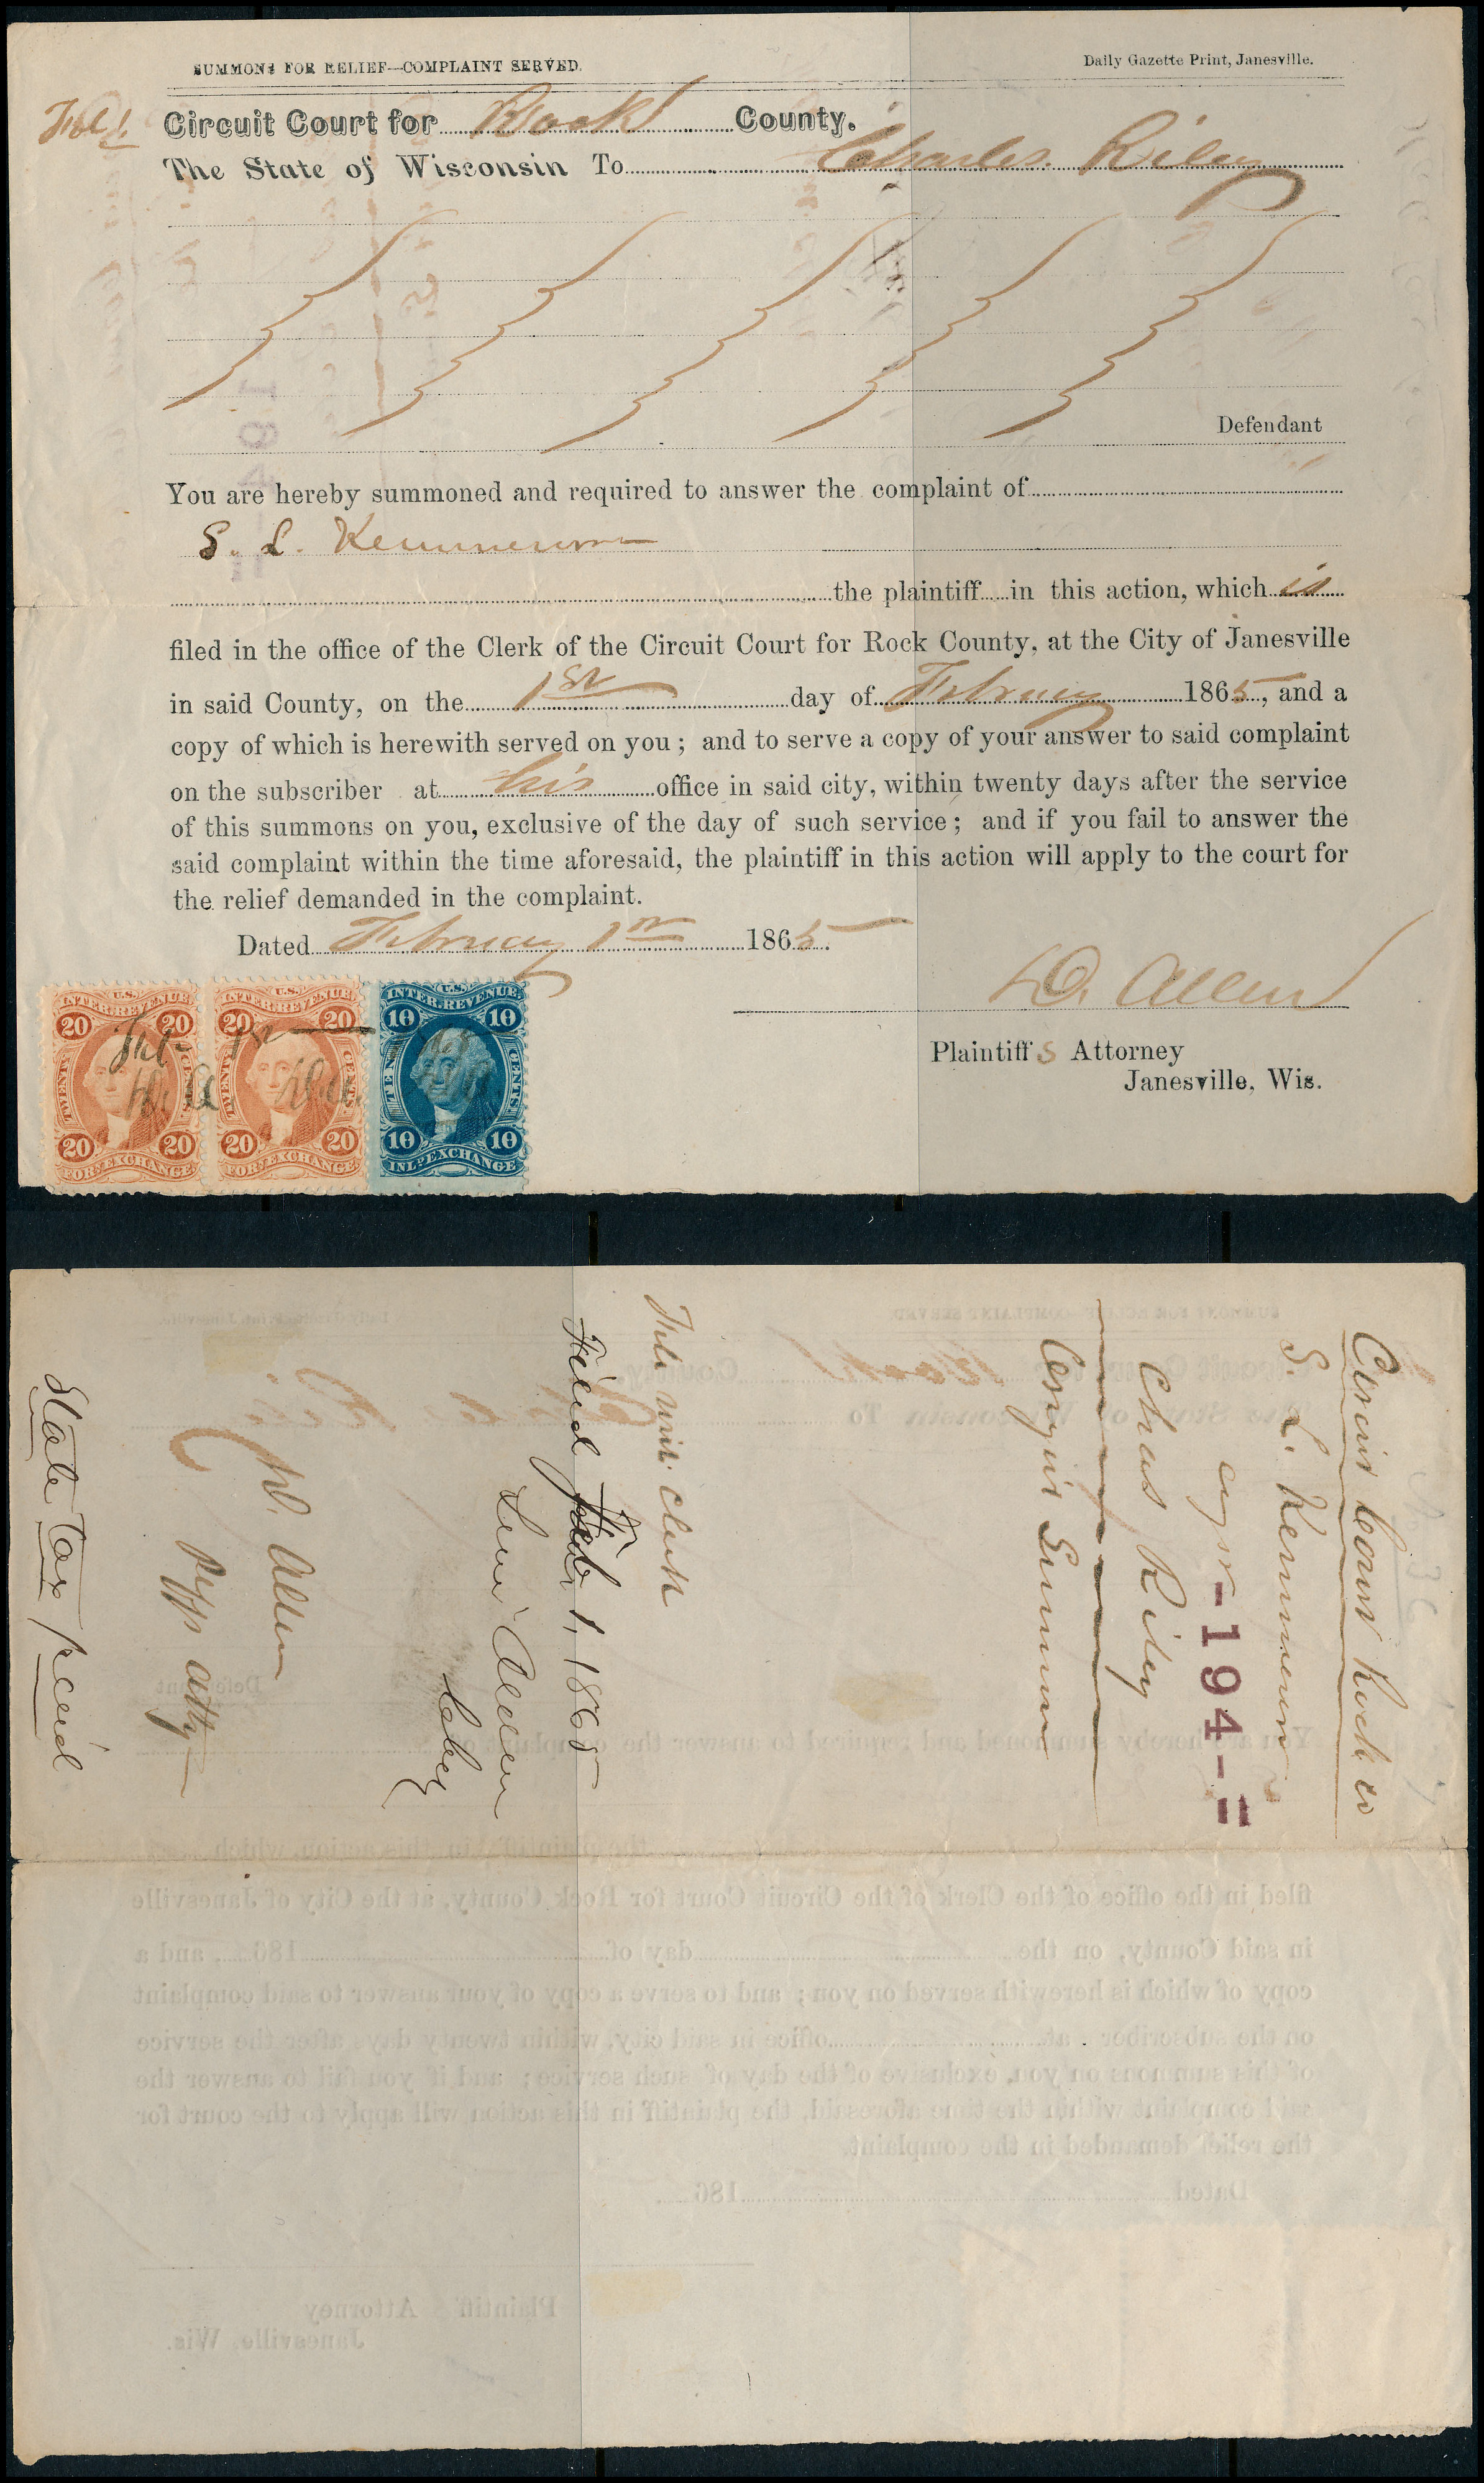 SUMMONS FOR RELIEF—COMPLAINT SERVED.
Daily Gazette Print, Janesville.
Circuit Court for Rock County.
The State of Wisconsin To Charles Riley
Defendant
You are hereby summoned and required to answer the complaint of
S. L.
the plaintiff in this action, which is
filed in the office of the Clerk of the Circuit Court for Rock County, at the City of Janesville
in said County, on the 1st day of February 1865, and a
copy of which is herewith served on you; and to serve a copy of your answer to said complaint
on the subscriber at his office in said city, within twenty days after the service
of this summons on you, exclusive of the day of such service; and if you fail to answer the
said complaint within the time aforesaid, the plaintiff in this action will apply to the court for
the relief demanded in the complaint.
Dated February 1st 1865.
Allen
Plaintiffs Attorney
Janesville, Wis.
U.S. INTER. REVENUE.
20 20
TWENTY CENTS.
20 20
FOR. EXCHANGE
U.S. INTER. REVENUE.
20 20
TWENTY CENTS.
20 20
FOR. EXCHANGE
U.S. INTER. REVENUE.
10 10
TEN CENTS.
10 10
INL'D EXCHANGE
Circuit Court Rock Co
S. L.
agst
-194-=
Chas Riley
Clerk
Filed Feb. 1, 1865
Levi Alden
Clerk
Allen
Plffs atty
State Tax paid